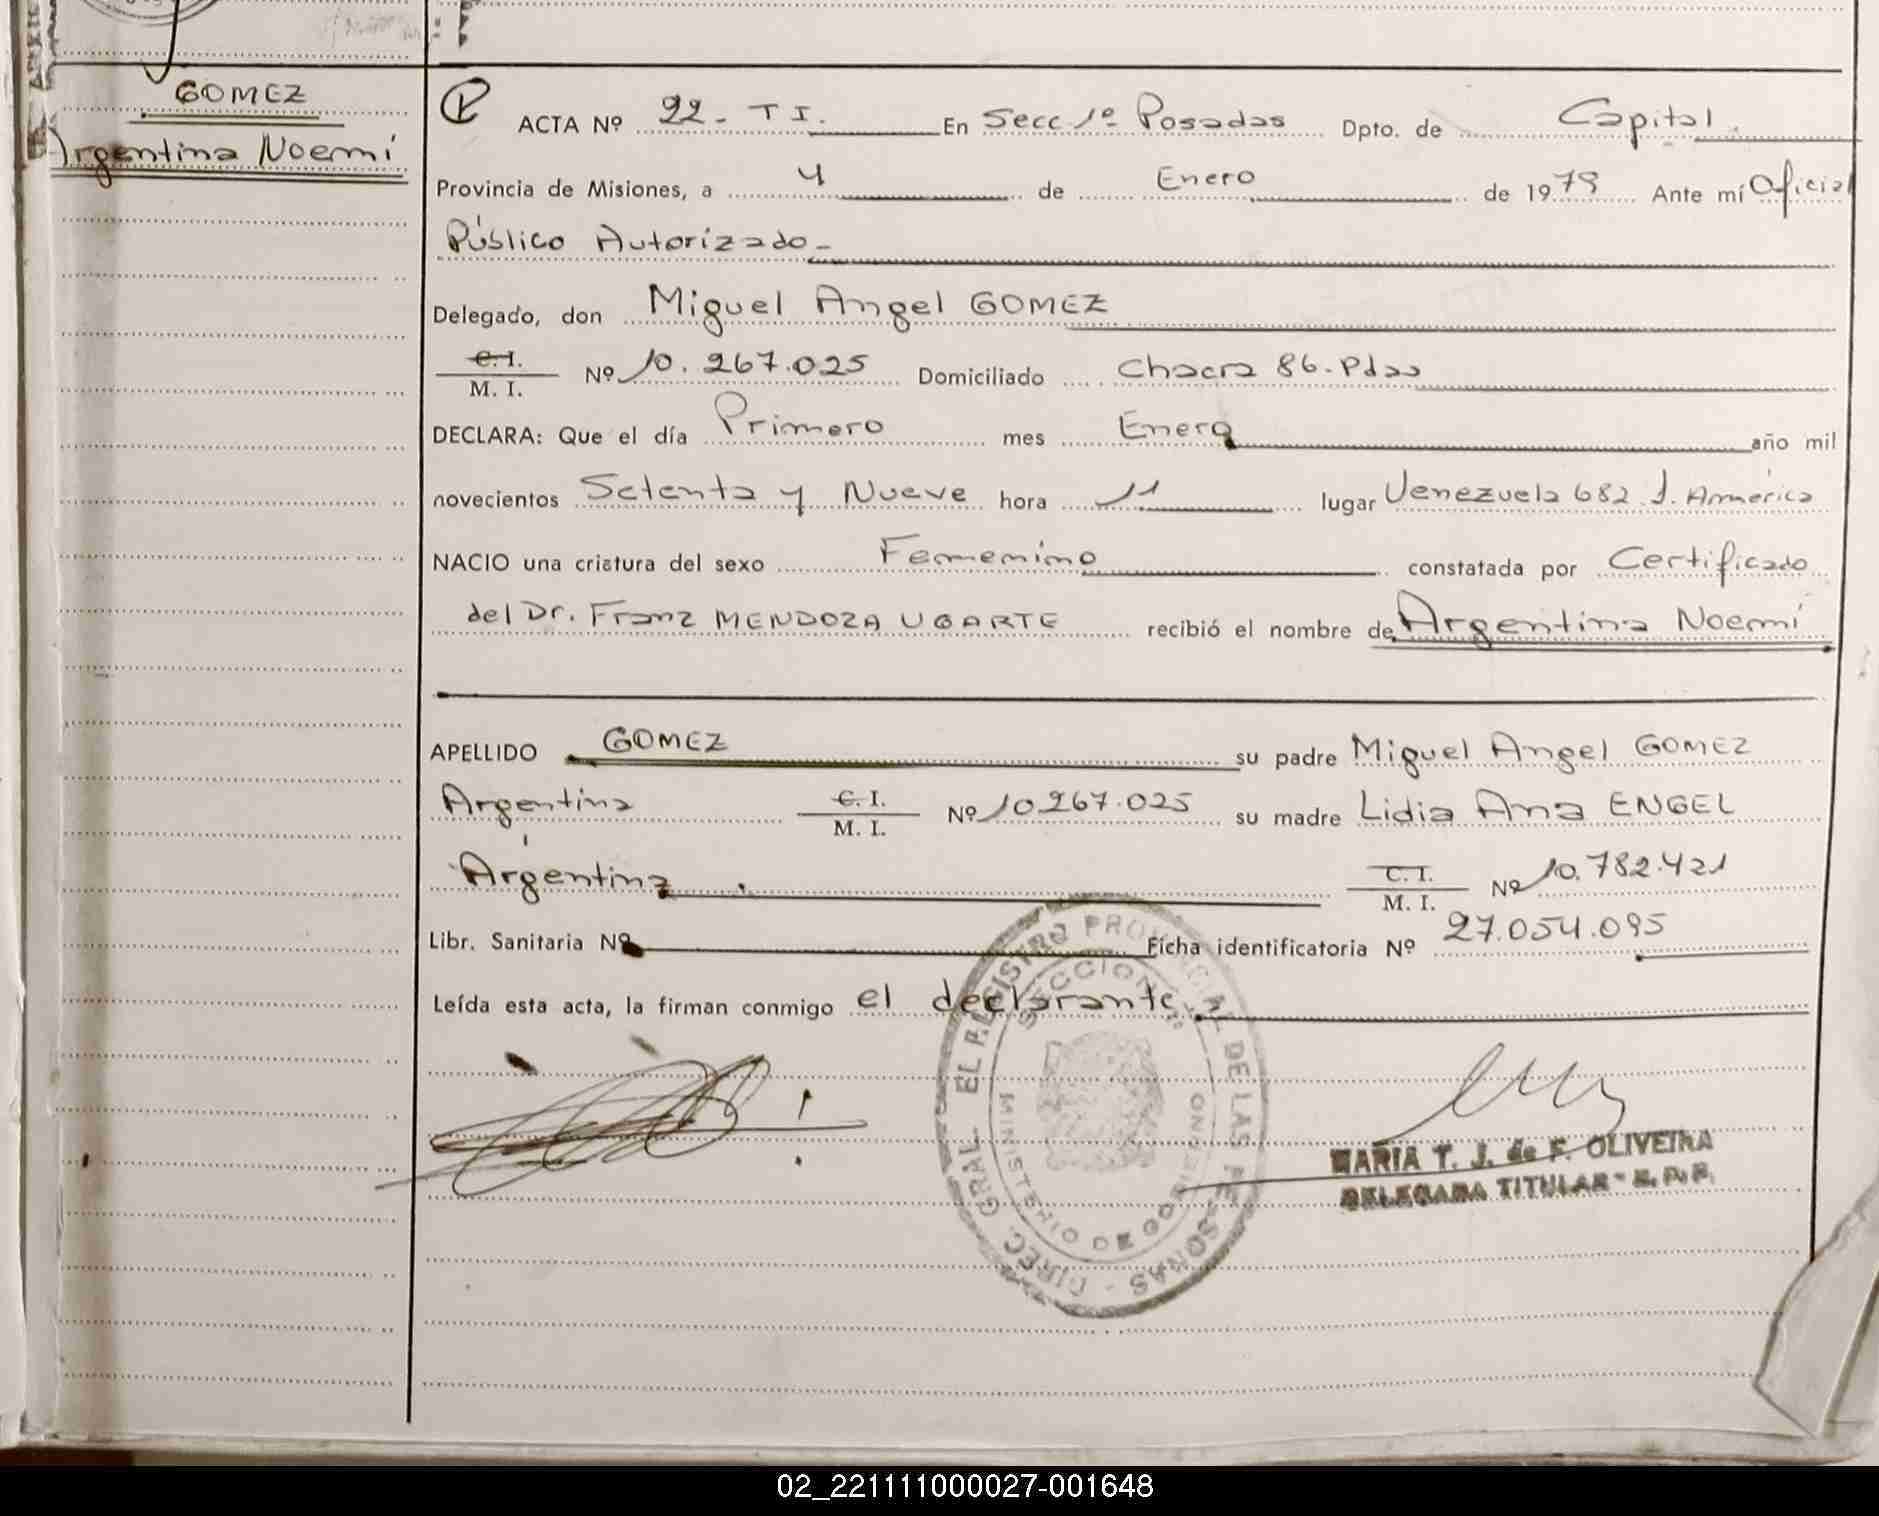 GOMEZ
Argentina Noemí
ACTA Nº 22 - T I. En Secc 1º Posadas Dpto. de Capital
Provincia de Misiones, a 4 de Enero de 1979 Ante mí Oficial
Público Autorizado -
Delegado, don Miguel Angel GOMEZ
C. I.
M. I. Nº 10.267.025 Domiciliado Chacra 86. Pdas
DECLARA: Que el día Primero mes Enero año mil
novecientos Setenta y Nueve hora 11 lugar Venezuela 682 J. América
NACIO una criatura del sexo Femenino constatada por Certificado
del Dr. Franz MENDOZA UGARTE recibió el nombre de Argentina Noemí
APELLIDO GOMEZ su padre Miguel Angel GOMEZ
Argentina C. I.
M. I. Nº 10.267.025 su madre Lidia Ana ENGEL
Argentina C. I.
M. I. Nº 10.782.421
Libr. Sanitaria Nº Ficha identificatoria Nº 27.054.095
Leída esta acta, la firman conmigo el declarante
DIREC. GRAL. EL REGISTRO PROVINCIAL DE LAS PERSONAS -
SECCION 1ª
MINISTERIO DE GOBIERNO
MARIA T. J. de F. OLIVEIRA
DELEGADA TITULAR - R. P. P.
02_221111000027-001648